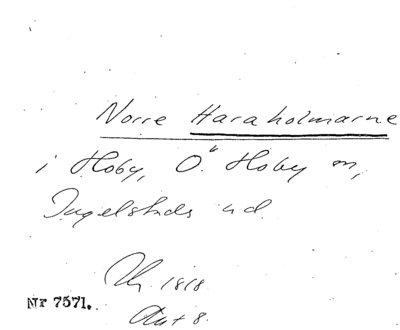 Norre Haraholmarne
i Hoby, Ö. Hoby sn,
Ingelstads hd.
1818
Nr 7571.
Akt 8.